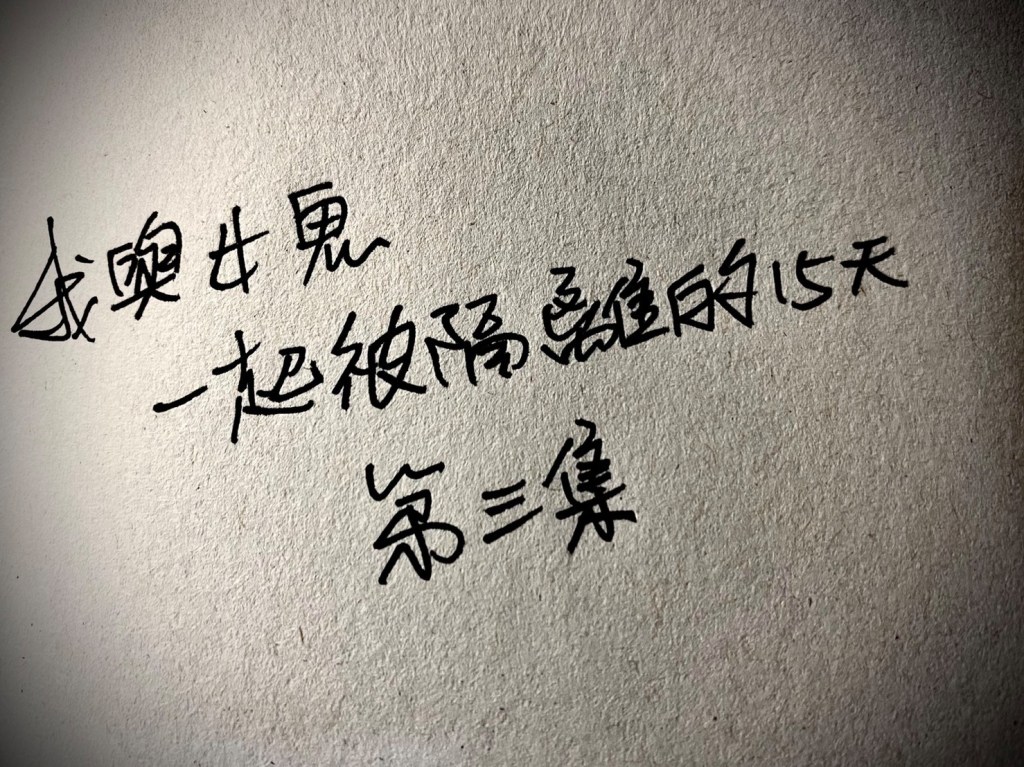 我與女鬼
一起被隔離的15天
第三集